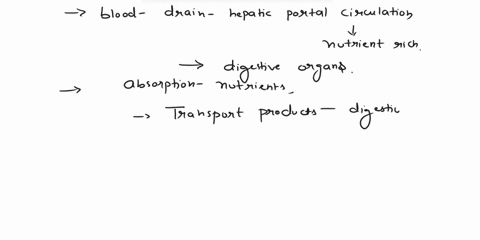 → blood- drain- hepatic portal circulation
↓
nutrient rich.
→ digestive organs.
→ absorption- nutrients.
→ Transport products- digestic